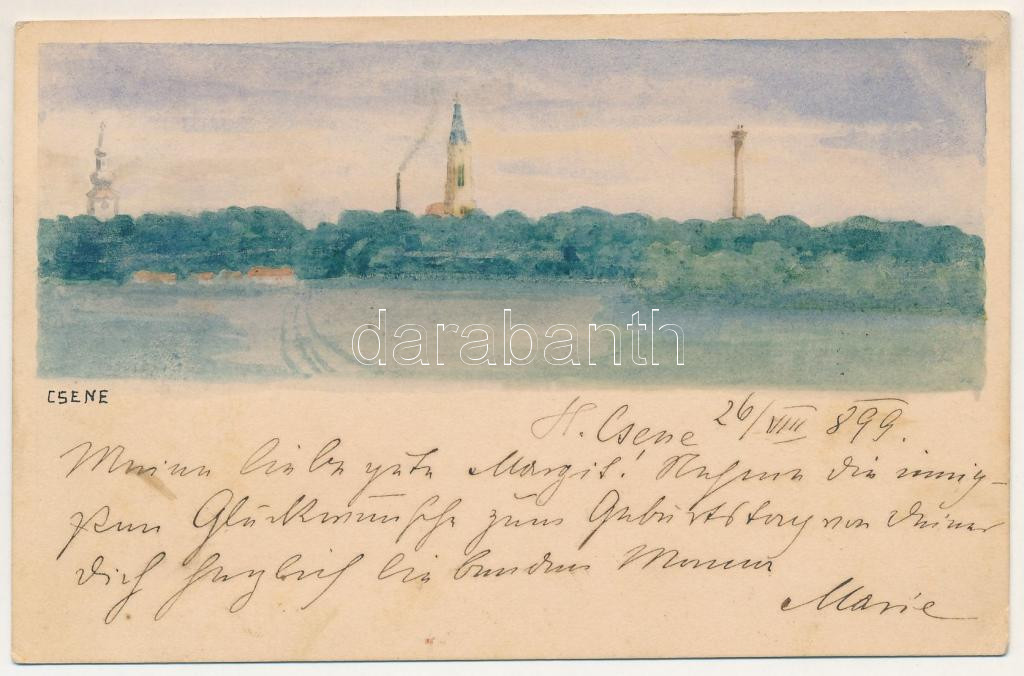 darabanth
CSENE
N. Csene 26/VIII 899.
Meine liebe gute Margit! Nehme die innig-
sten Glückwünsche zum Geburtstag von Deiner
Dich herzlich liebenden
Marie